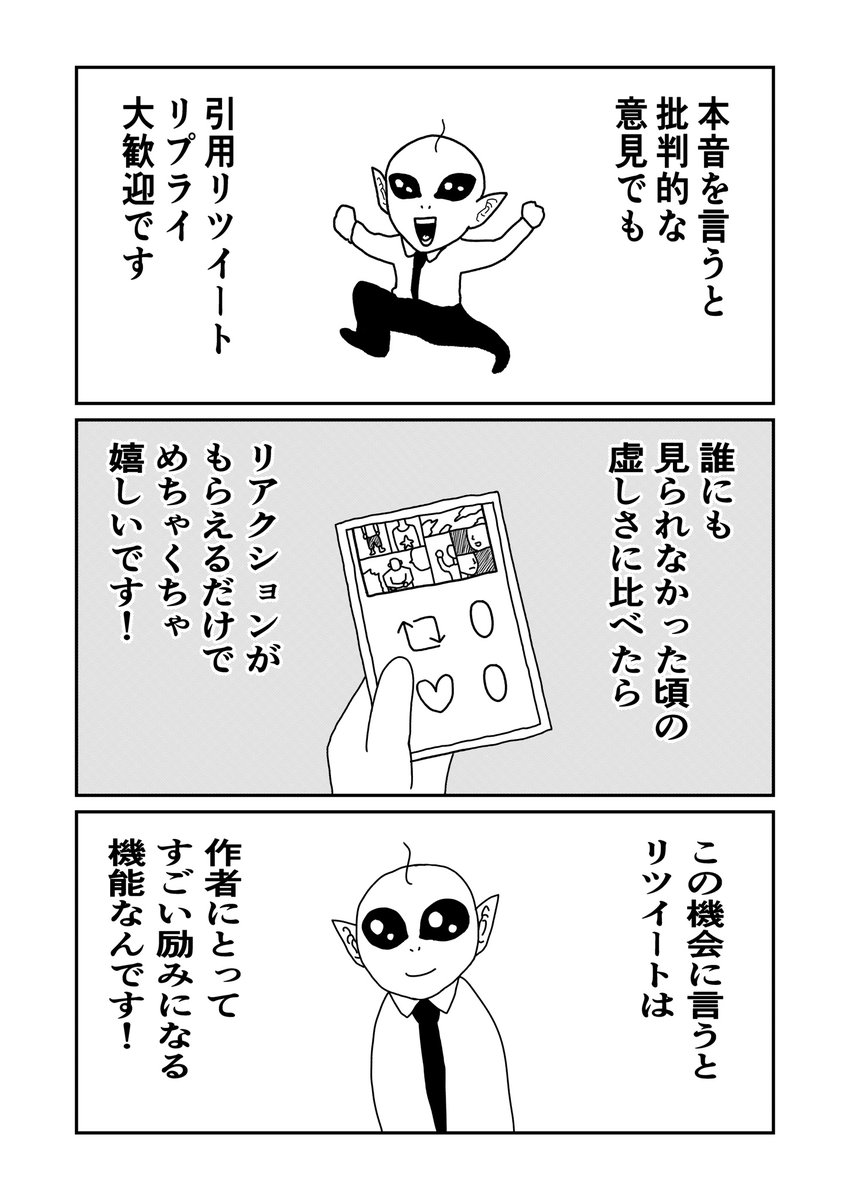 本音を言うと
批判的な
意見でも
引用リツイート
リプライ
大歓迎です
誰にも
見られなかった頃の
虚しさに比べたら
リアクションが
もらえるだけで
めちゃくちゃ
嬉しいです！
この機会に言うと
リツイートは
作者にとって
すごい励みになる
機能なんです！